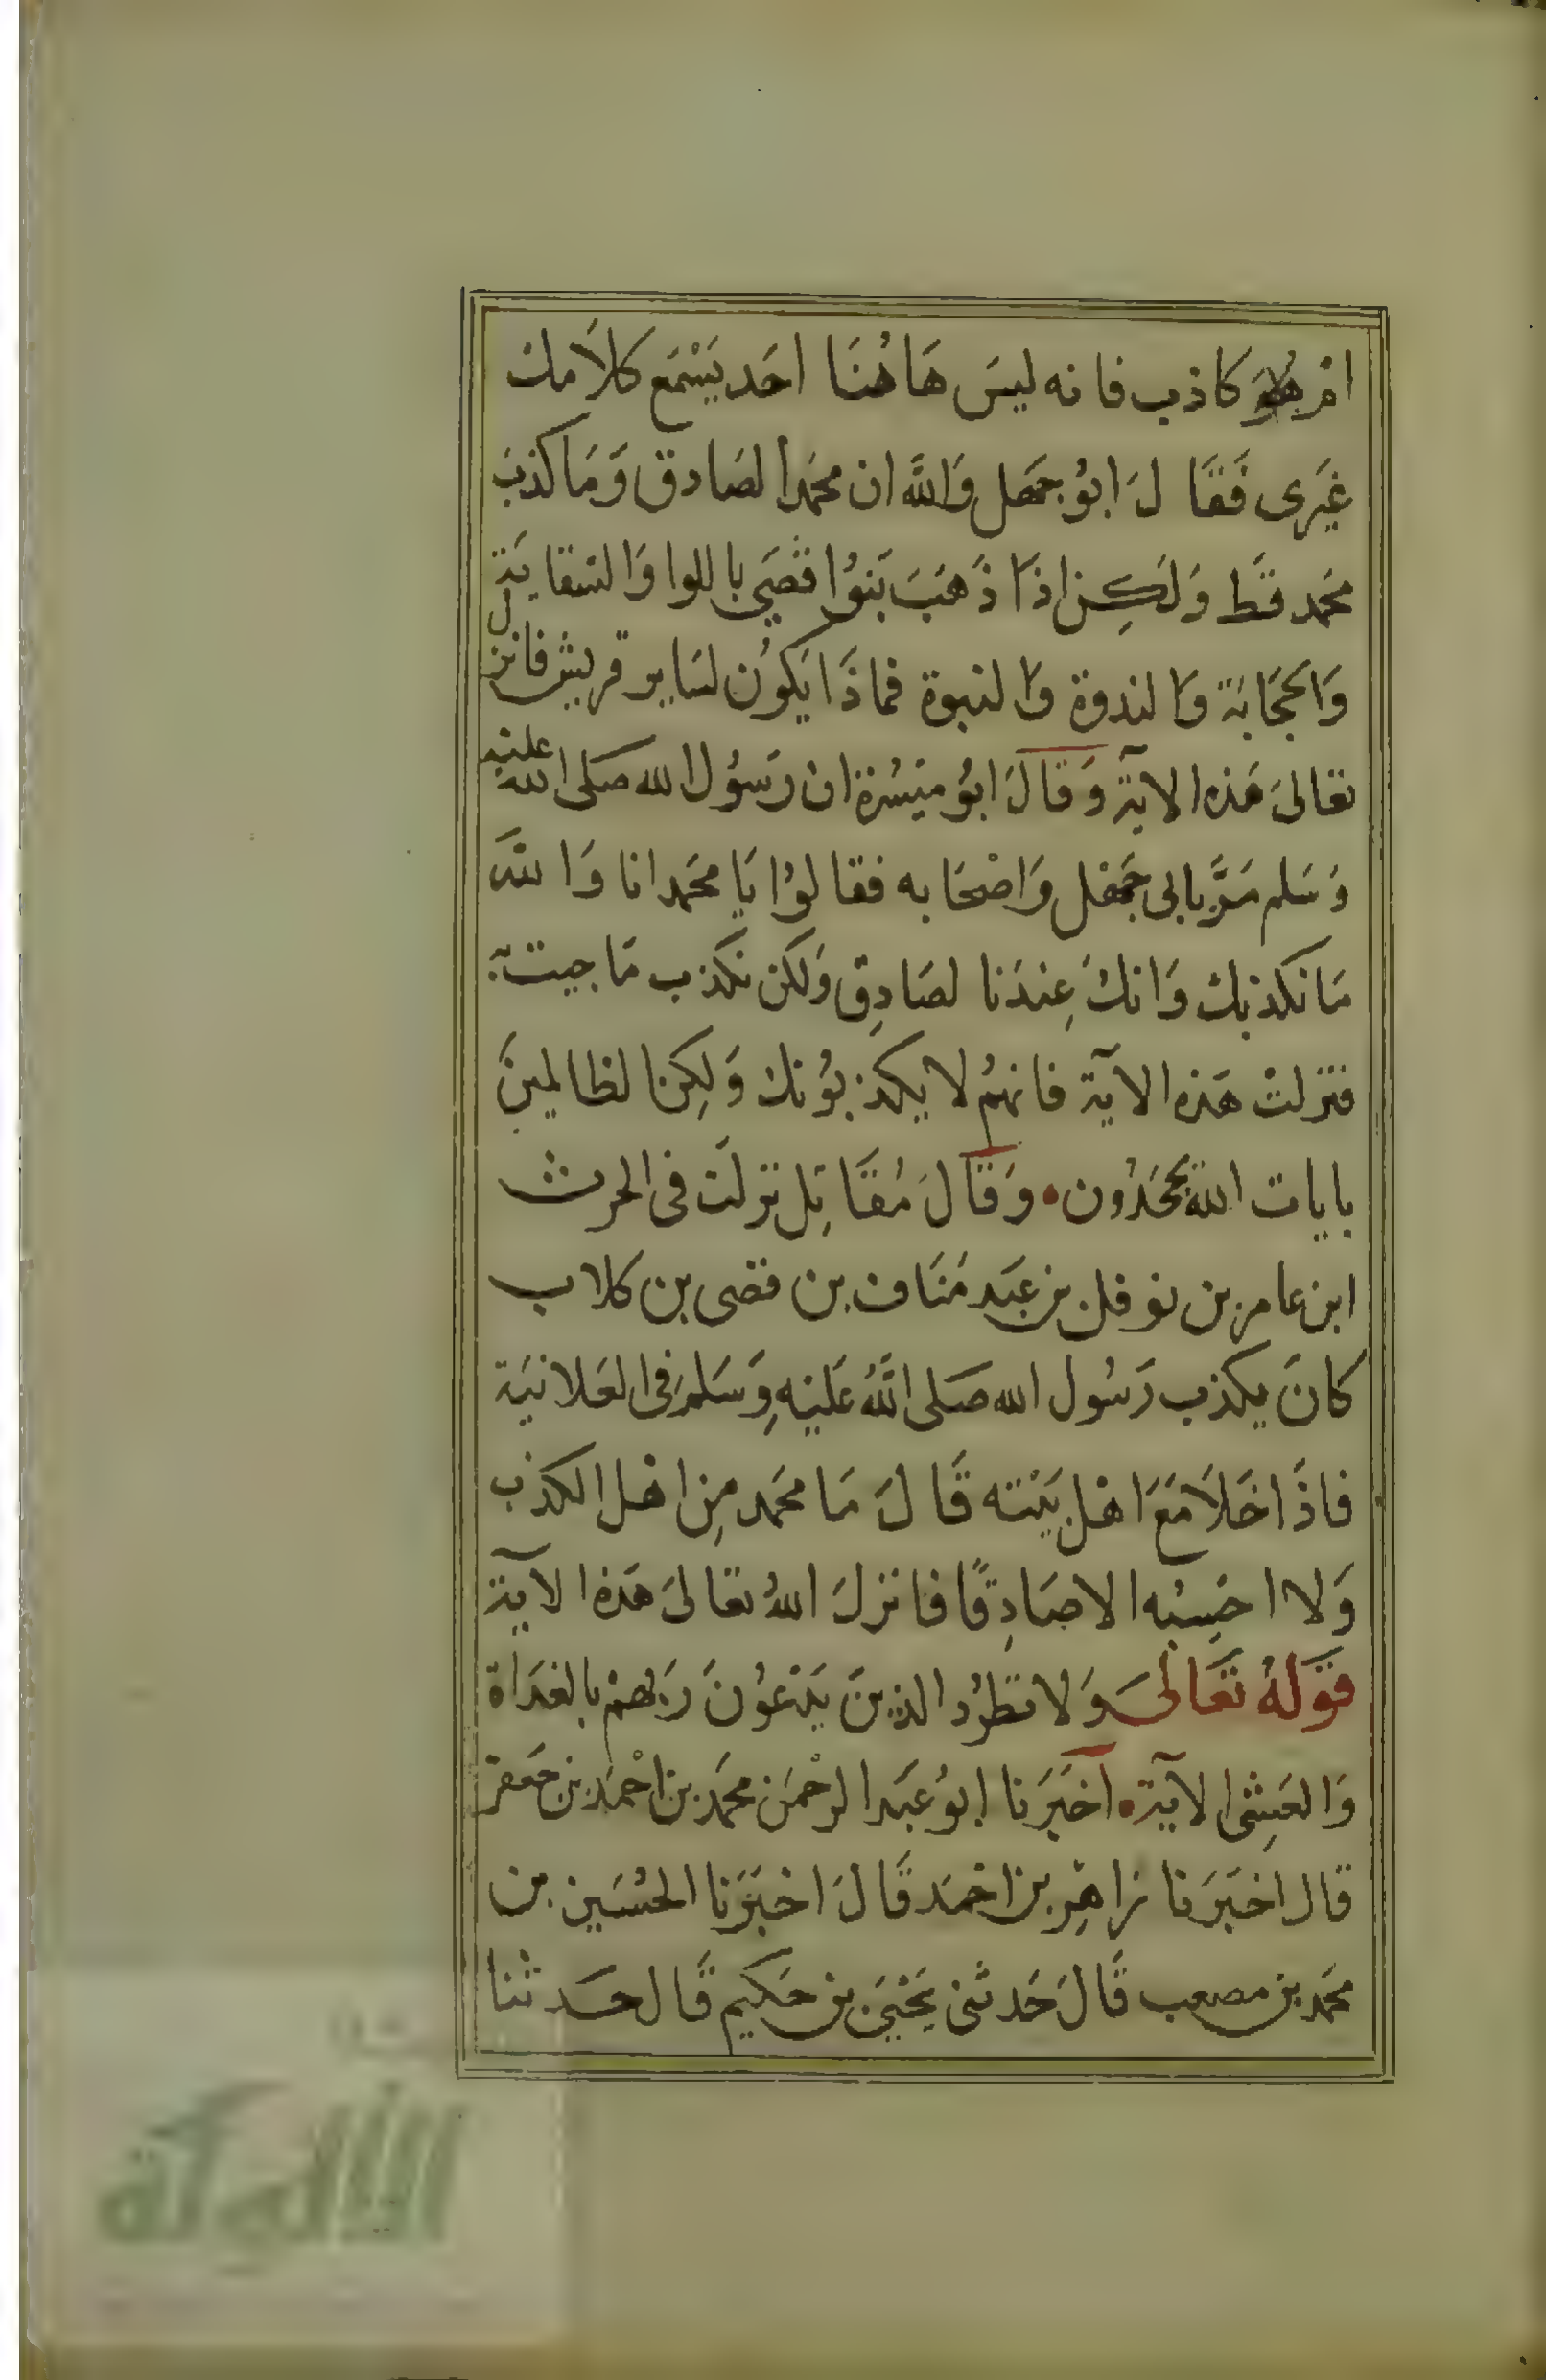 امْ هُوَ كاذب فانه ليسَ هَاهُنَا احَد يَسْمَع كلاَمك
غيَرى فَقَالَ ابوُجهَل وَاللَّه ان محمَدا لصَادق وَمَا كذبَ
محمَد قَط وَلَكِن اذَا ذَهَبَ بَنوُا قصَي باللوا وَالسقايَة
وَالحجَابَة وَالندوة وَالنبوة فماذَا يَكوُن لسَاير قريش فانزل
تعَالىَ هَذه الآية وَقَالَ ابوُ ميَسْرة ان رَسوُل الله صَلى الله عليه
وَسَلم مَرَّ بابى جَهْل وَاصْحَابه فقالوُا يَا محمَد انا وَاللَّه
مَا نكذبك وَانكَ عِندَنا لصَادِق وَلكن نكذب مَا جيت به
فنزلتْ هَذه الآية فانهمُ لا يكذبوُنك وَلكِن الظالمِينَ
بايات الله يجحَدُون ۰ وَقَالَ مُقَاتِل نزلَت فى الحرث
ابن عامر بن نوفل بن عَبَد مَنَاف بن قصى بن كلاب
كانَ يكذب رَسُول الله صَلى اللَّهُ عَليْهِ وَسَلمَ فى العَلانيَة
فاذَا خَلاَ مَعَ اهْل بَيْته قَالَ مَا محمَد مِن اهْل الكذب
وَلا احَسِبُه الا صَادِقًا فانزلَ اللهُ تعَالىَ هَذه الآية
قوَلهُ تَعَالَى وَلا تطرُد الذينَ يَدْعوُنَ رَبهمْ بالغدَاة
وَالعَشِى الآية ۰ اَخبَرَنا ابوُ عَبَد الرحْمَن محمَد بن احْمَد بن جَعفر
قال اخبَرَنا زاهِر بن احْمَد قَالَ اخبَرَنا الحُسَين بن
محمَد بن مصعب قَالَ حَدثنى يَحْيىَ بن حَكيم قَال حَدثنا
الألوكة